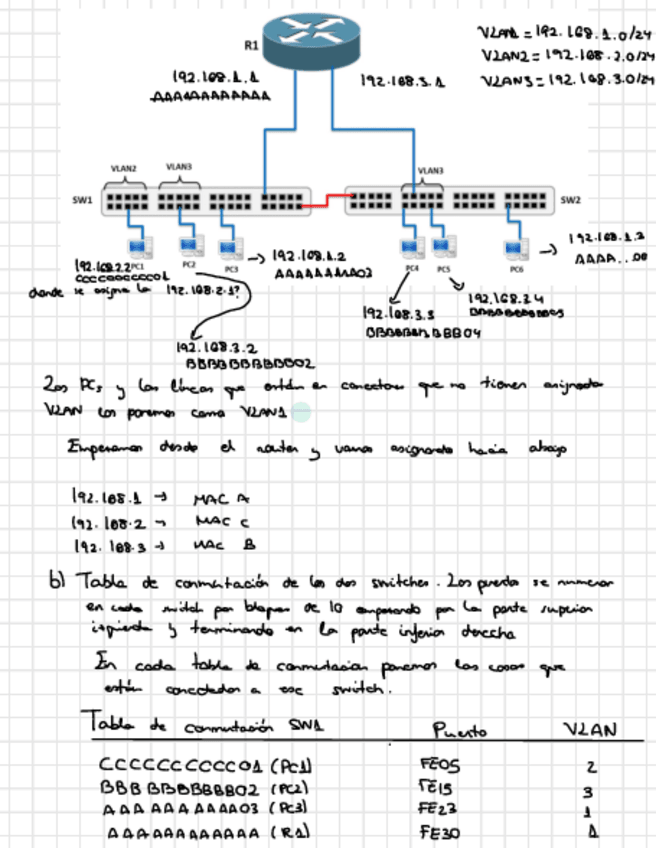 R1
VLAN1 = 192.168.1.0/24
VLAN2 = 192.168.2.0/24
VLAN3 = 192.168.3.0/24
192.168.1.1
AAAAAAAAAAAA
192.168.3.1
VLAN2
VLAN3
VLAN3
SW1
SW2
PC1
PC2
PC3
PC4
PC5
PC6
192.168.2.2
CCCCCCCCCC01
donde se asigna la 192.168.2.1?
192.168.1.2
AAAAAAAAAA03
192.168.1.3
AAAA...06
192.168.3.3
BBBBBBBBBB04
192.168.3.4
BBBBBBBBBB05
192.168.3.2
BBBBBBBBBB02
Los PCs y las líneas que están en conectores que no tienen asignada
VLAN los ponemos como VLAN1
Empezamos desde el router y vamos asignando hacia abajo
192.168.1 → MAC A
192.168.2 → MAC C
192.168.3 → MAC B
b) Tabla de conmutación de los dos switches. Los puertos se numeran
en cada switch por bloques de 10 empezando por la parte superior
izquierda y terminando en la parte inferior derecha
En cada tabla de conmutación ponemos las cosas que
están conectadas a ese switch.
Tabla de conmutación SW1 Puerto VLAN
CCCCCCCCCC01 (PC1) FE05 2
BBBBBBBBBB02 (PC2) FE15 3
AAAAAAAAAA03 (PC3) FE23 1
AAAAAAAAAAAA (R1) FE30 1